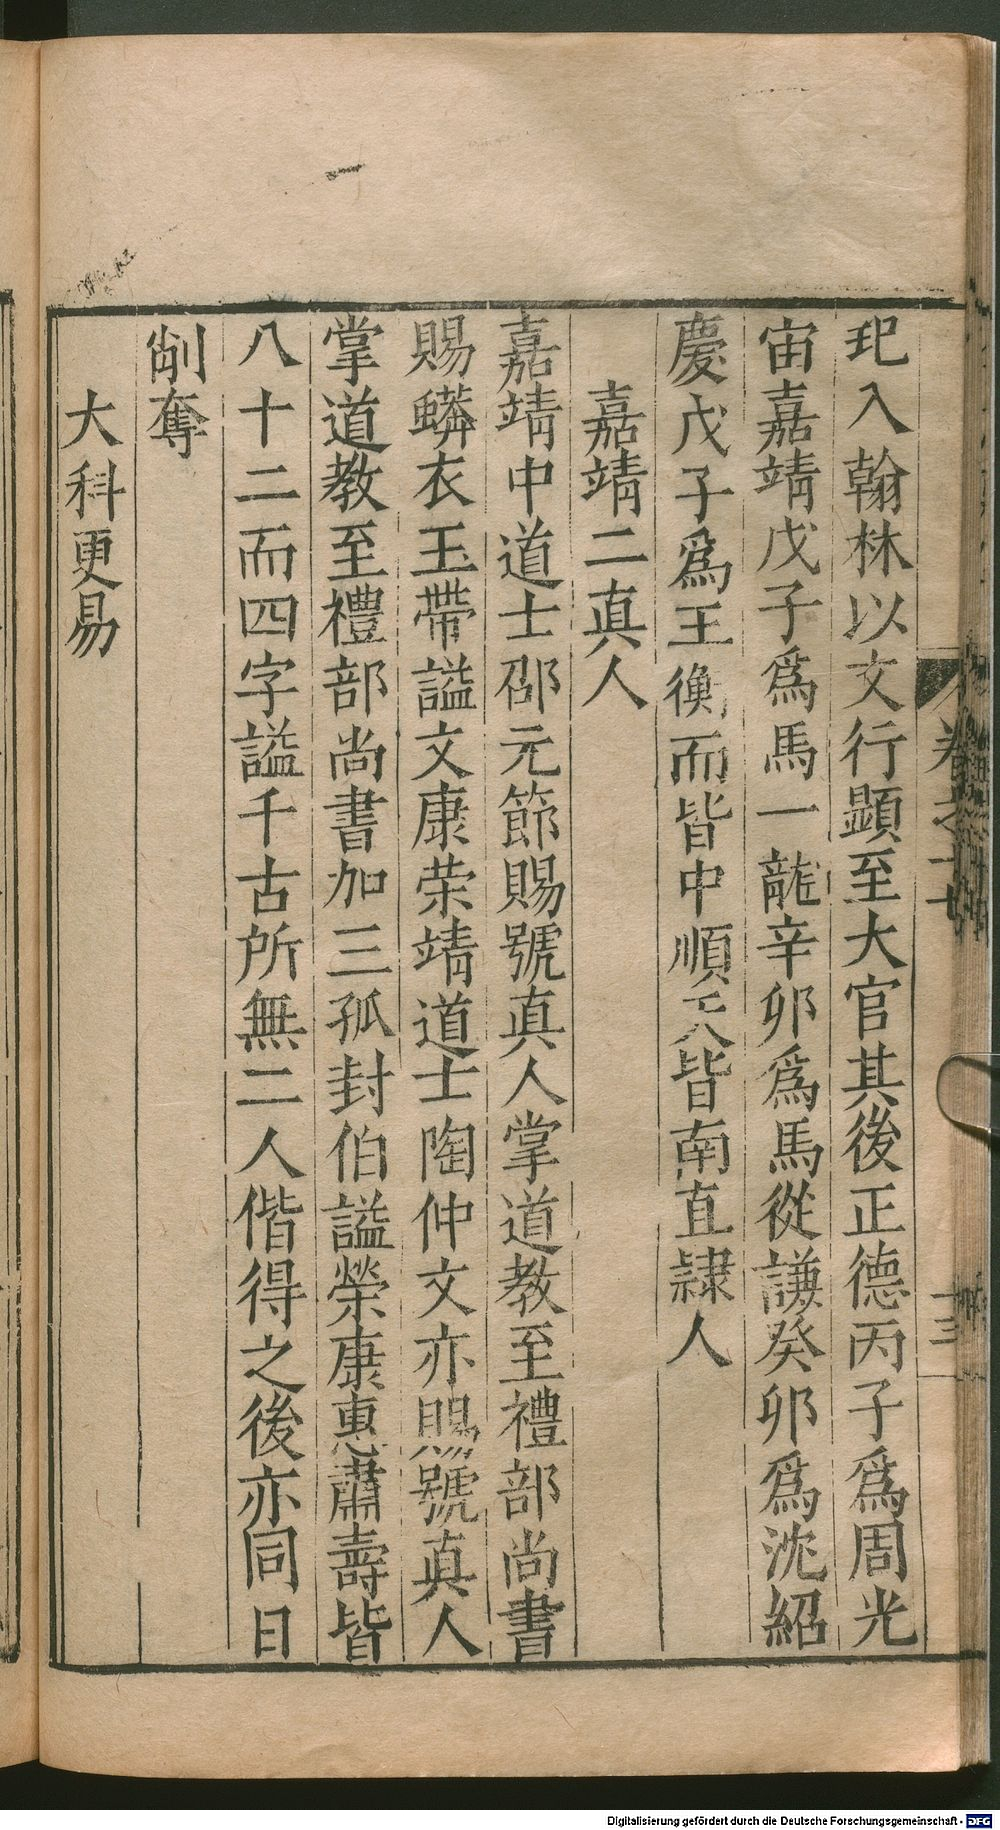 玘入翰林以文行顕至大官其後正德丙子爲周光
宙嘉靖戊子爲馬一龍辛卯爲馬從謙癸卯爲沈紹
慶戊子爲王衡而皆中順天皆南直隷人
嘉靖二真人
嘉靖中道士邵元節賜號真人掌道教至禮部尚書
賜蟒衣玉帶謚文康荣靖道士陶仲文亦賜號真人
掌道教至禮部尚書加三孤封伯謚榮康惠肅壽皆
八十二而四字謚千古所無二人偕得之後亦同日
削奪
大科更易
卷之十七
十三
Digitalisierung gefördert durch die Deutsche Forschungsgemeinschaft - DFG